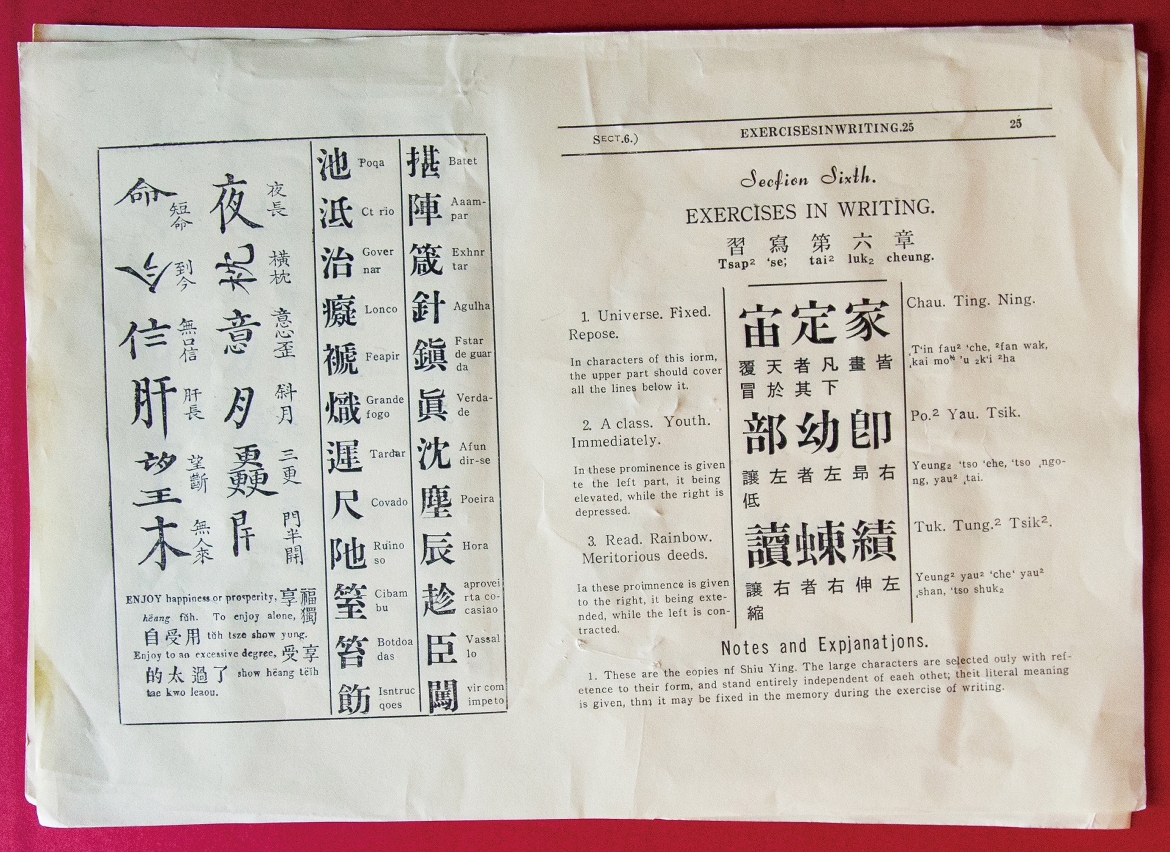 命 短命 夜 夜長
今 到今 枕 橫枕
信 無口信 意 意心歪
肝 肝長 月 斜月
望 望斷 更更 三更
木 無人來 門半開
ENJOY happiness or prosperity, 享福
hëang füh. To enjoy alone, 獨
自受用 tŭh tsze show yung.
Enjoy to an excessive degree, 受享
的太過了 show hëang tëïh
tae kwo leaou.
池 Poqa
泜 Ct rio
治 Gover
nar
癡 Lonco
褫 Feapir
熾 Grande
fogo
遲 Tardar
尺 Covado
阤 Ruino
so
Cibam
bu
笞 Botdoa
das
飭 Isntruc
qoes
揕 Batet
陣 Aaam-
par
箴 Exhnr
tar
針 Agulha
鎭 Fstar
de guar
da
眞 Verda-
de
沈 Afun
dir-se
塵 Poeira
辰 Hora
趁 aprovei
rta co-
casiao
臣 Vassal
lo
闖 vir com
impeto
SECT.6.) EXERCISESINWRITING.25 25
Section Sixth.
EXERCISES IN WRITING.
習 寫 第 六 章
Tsap² ‘se; tai² luk₂ cheung.
1. Universe. Fixed.
Repose.
In characters of this iorm,
the upper part should cover
all the lines below it.
宙定家
覆 天 者 凡 畫 皆
冒 於 其 下
Chau. Ting. Ning.
‚T‘in fau² ‘che, ²fan wak,
‚kai mo‶ ‘u ₂k‘i ²ha
2. A class. Youth.
Immediately.
In these prominence is given
te the left part, it being
elevated, while the right is
depressed.
部幼卽
讓 左 者 左 昂 右
低
Po.² Yau. Tsik.
Yeung₂ ‘tso ‘che, ‘tso ‚ngo-
ng, yau² ‚tai.
3. Read. Rainbow.
Meritorious deeds.
Ia these proimnence is given
to the right, it being exte-
nded, while the left is con-
tracted.
讀蝀績
讓 右 者 右 伸 左
縮
Tuk. Tung.² Tsik².
Yeung² yau² ‘che‘ yau²
‚shan, ‘tso shuk₂
Notes and Expjanatjons.
1. These are the eopies nf Shiu Ying. The large characters are selected ouly with ref-
etence to their form, and stand entirely independent of eaeh othet; theit literal meaning
is given, thnı it may be fixed in the memory during the exercise of writing.